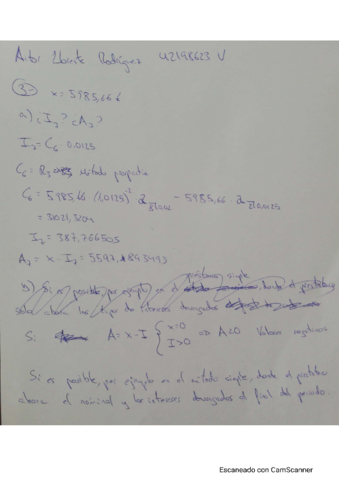 Aitor Lorente Rodríguez 42198623 V
3- x = 5985,666
a) ¿I₇? ¿A₇?
I₇ = C₆ · 0.0125
C₆ = Método prospectivo
C₆ = 5985,66 (1,0125)⁻² a - 5985,66 · a
= 31021,3204
I₇ = 387,766505
A₇ = x - I₇ = 5597,893493
b) Si es posible, por ejemplo en el préstamo simple, donde el prestatario
solo abona los intereses devengados
Si A = x - I { x=0 I>0 ⇒ A<0 Valores negativos
Si es posible, por ejemplo en el método simple, donde el prestatario
abona el nominal y los intereses devengados al final del periodo.
Escaneado con CamScanner